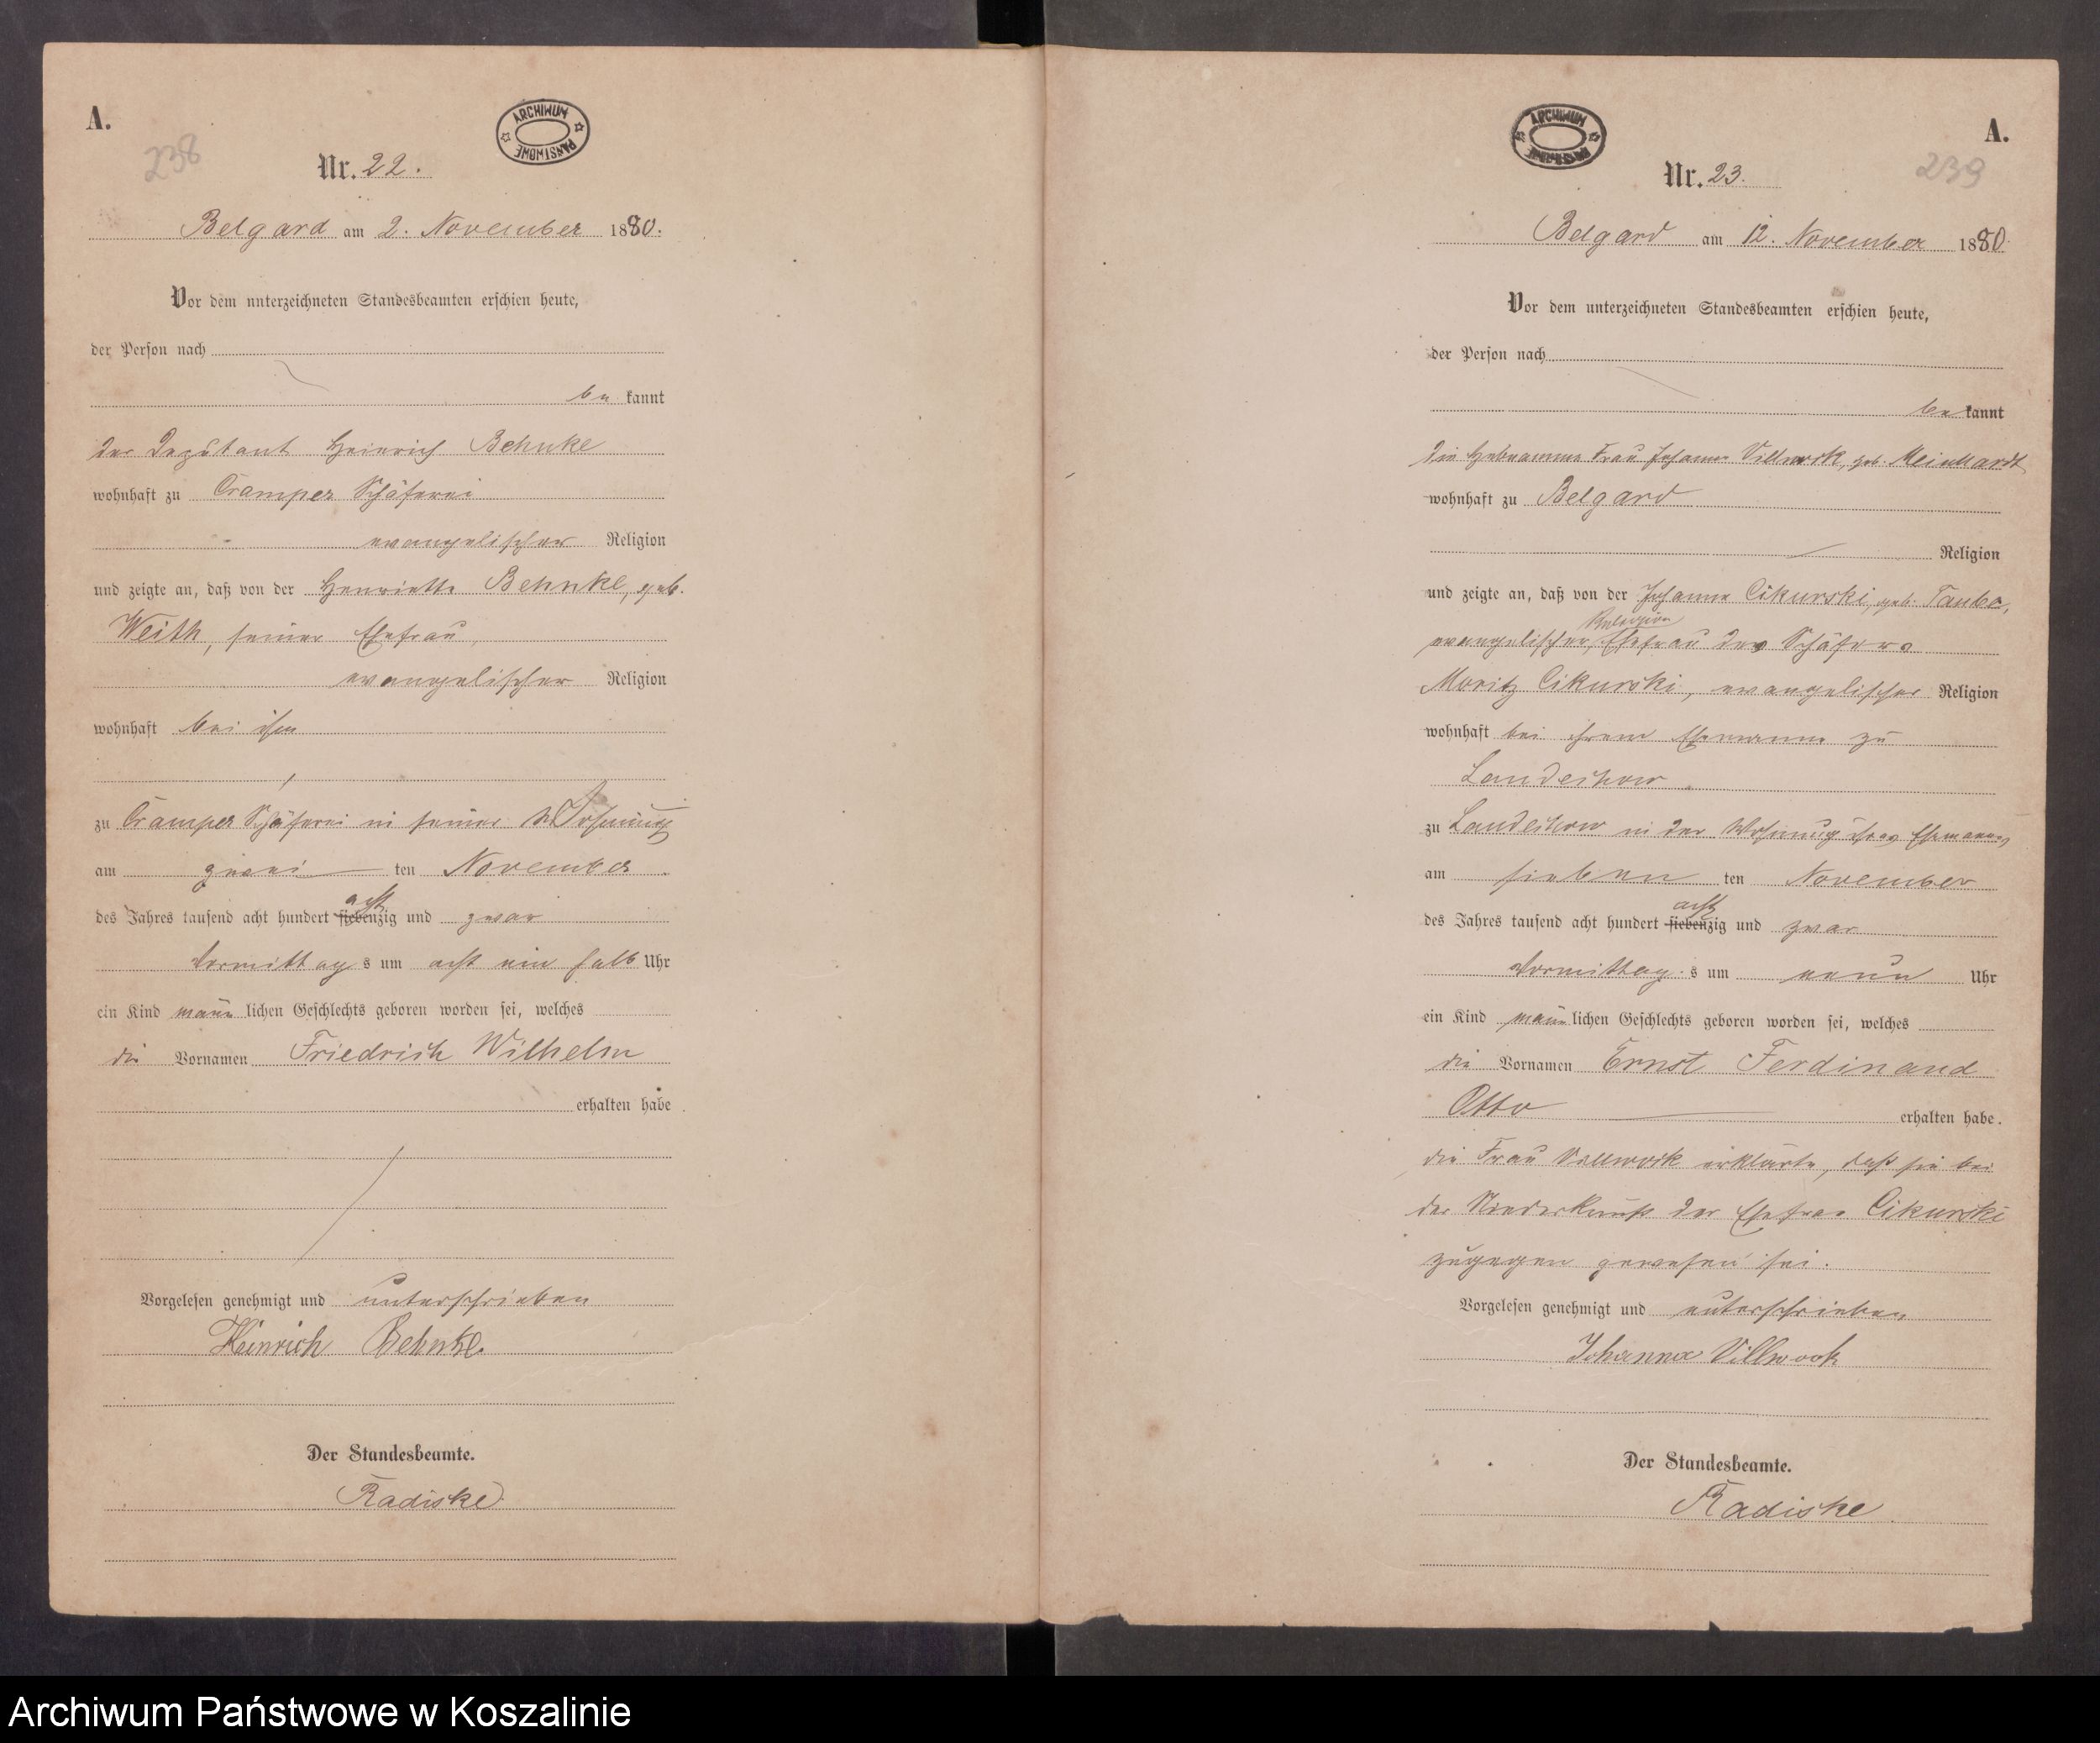 A.
238
ARCHIWUM PAŃSTWOWE
Nr. 22.
Belgard am 2. November 1880.
Vor dem unterzeichneten Standesbeamten erschien heute,
der Person nach
be kannt
der Deputant Heinrich Behnke
wohnhaft zu Cramper Schäferei
evangelischer Religion
und zeigte an, daß von der Henriette Behnke, geb.
Weith, seiner Ehefrau,
evangelischer Religion
wohnhaft bei ihm
zu Cramper Schäferei in seiner Wohnung
am zwei ten November
des Jahres tausend acht hundert siebenzig acht und zwar
Vormittag s um acht ein halb Uhr
ein Kind männ lichen Geschlechts geboren worden sei, welches
die Vornamen Friedrich Wilhelm
erhalten habe.
Vorgelesen genehmigt und unterschrieben
Heinrich Behnke.
Der Standesbeamte.
Radiske
A.
239
ARCHIWUM PAŃSTWOWE
Nr. 23.
Belgard am 12. November 1880.
Vor dem unterzeichneten Standesbeamten erschien heute,
der Person nach
be kannt
die Hebeamme Frau Johanna Villwock, geb. Meinhardt
wohnhaft zu Belgard
Religion
und zeigte an, daß von der Johanna Cikurski, geb.
Religion
evangelischer, Ehefrau des Schäfers
Moritz Cikurski, evangelischer Religion
wohnhaft bei ihrem Ehemanne zu
Landechow
zu Landechow in der Wohnung ihres Ehemannes
am sieben ten November
des Jahres tausend acht hundert siebenzig acht und zwar
Vormittag s um neun Uhr
ein Kind männ lichen Geschlechts geboren worden sei, welches
die Vornamen Ernst Ferdinand
Otto erhalten habe.
die Frau Villwock erklärte, daß sie bei
der Niederkunft der Ehefrau Cikurski
zugegen gewesen sei.
Vorgelesen genehmigt und unterschrieben
Johanna Villwock
Der Standesbeamte.
Radiske
Archiwum Państwowe w Koszalinie